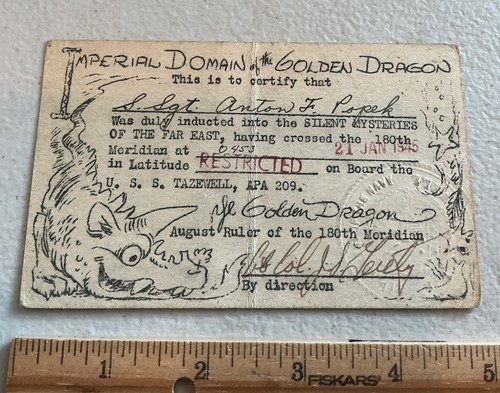 IMPERIAL DOMAIN of the GOLDEN DRAGON
This is to certify that
S. Sgt. Anton F. Popek
Was duly inducted into the SILENT MYSTERIES
OF THE FAR EAST, having crossed the 180th
Meridian at 0453 21 JAN 1945
in Latitude RESTRICTED on Board the
U. S. S. TAZEWELL, APA 209.
Ye Golden Dragon
August Ruler of the 180th Meridian
Lt Col J S
By direction
1 2 3 FISKARS 4 5